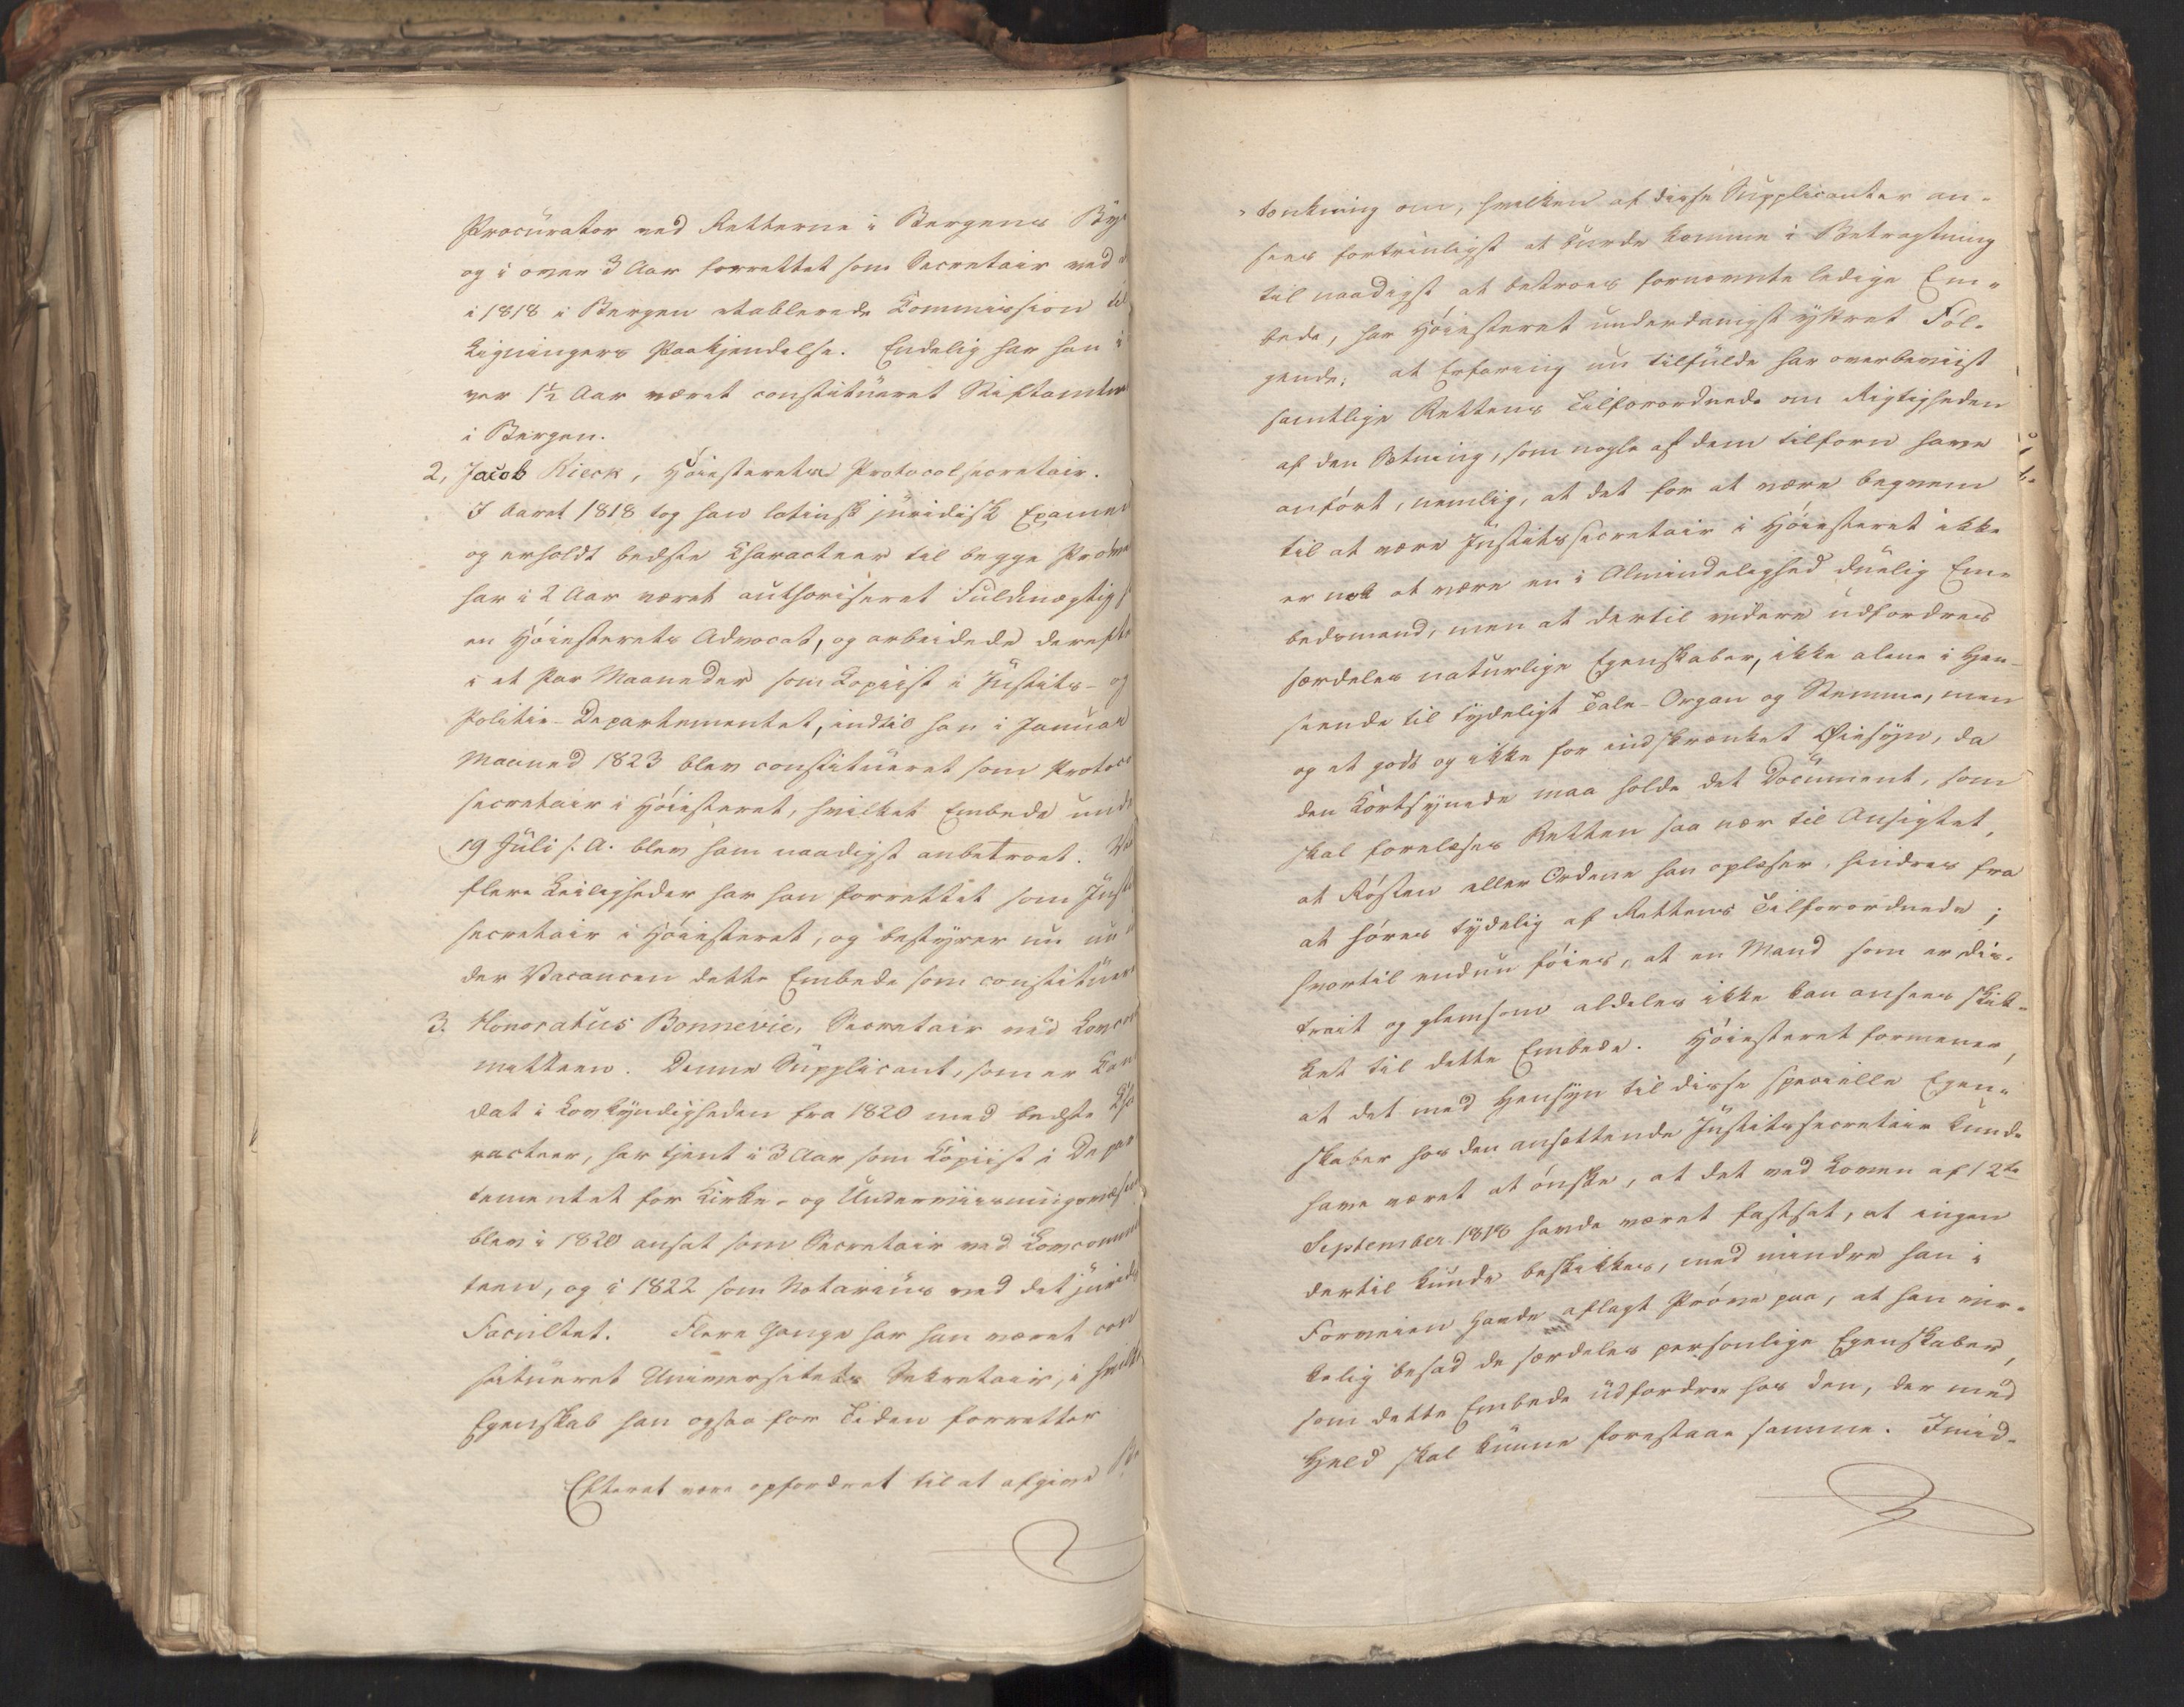 Procurator ved Retterne i Bergens Bye
og i over 3 Aar forrettet som Secretair ved
i 1818 i Bergen etablerede Commission til
Ligningers Paakjendelse. Endelig har han i
ver 1½ Aar været constitueret Stiftamts
i Bergen.
2, Jacob Kieck, Høiesterets Protocolsecretair.
I Aaret 1818 tog han latinsk juridisk Examen
og erholdt bedste Characteer til begge Prøver
har i 2 Aar været authoriseret Fuldmægtig
en Høiesterets Advocat, og arbeidede derefte
i et Par Maaneder som Copiist i Justits- og
Politie-Departementet, indtil han i Januar
Maaned 1823 blev constitueret som Protoco
secretair i Høiesteret, hvilket Embede unde
19 Juli s. A. blev ham naadigst anbetroet. Ved
flere Leiligheder har han forrettet som Just
secretair i Høiesteret, og bestyrer nu un
der Vacancen dette Embede som constituer
3. Honoratus Bonnevie, Secretair ved Lovcom
mitteen. Denne Supplicant, som er Can
dat i Lovkyndigheden fra 1820 med bedste Cha
racteer, har tjent i 3 Aar som Copiist i Depar
tementet for Kirke- og Underviisningsvæsen
blev i 1820 ansat som Secretair ved Lovcommi
teen, og i 1822 som Notarius ved det juridi
Facultet. Flere Gange har han været con
stitueret Universitets Sekretair, i hvilk
Egenskab han ogsaa for Tiden forretter
Efterat være opfordret til at afgive Be
tænkning om, hvilken af disse Supplicanter an-
sees fortrinligst at burde komme i Betragtning
til naadigst at betroes fornævnte ledige Em-
bede, har Høiesteret underdanigst yttret Føl-
gende; at Erfaring nu tilfulde har overbeviist
samtlige Rettens Tilforordnede om Rigtigheden
af den Sætning, som nogle af dem tilforn have
anført, nemlig, at det for at være beqvem
til at være Justitssecretair i Høiesteret ikke
er nok at være en i Almindelighed duelig Em-
bedsmand, men at dertil videre udfordres
særdeles naturlige Egenskaber, ikke alene i Hen-
seende til tydeligt Tale-Organ og Stemme, men
og et godt og ikke for indskrænket Øiesyn, da
den Kortsynede maa holde det Document, som
skal forelæses Retten saa nær til Ansigtet,
at Røsten eller Ordene han oplæser, hindres fra
at høres tydelig af Rettens Tilforordnede;
hvortil endnu føies, at en Mand som er dis-
trait og glemsom aldeles ikke kan ansees skik-
ket til dette Embede. Høiesteret formener,
at det med Hensyn til disse specielle Egen-
skaber hos den ansættende Justitssecretair kunde
have været at ønske, at det ved Loven af 12te
September 1818 havde været fastsat, at ingen
dertil kunde beskikkes, med mindre han i
Forveien havde aflagt Prøve paa, at han vir-
kelig besad de særdeles personlige Egenskaber,
som dette Embede udfordrer hos den, der med
Held skal kunne forestaae samme. Imid-